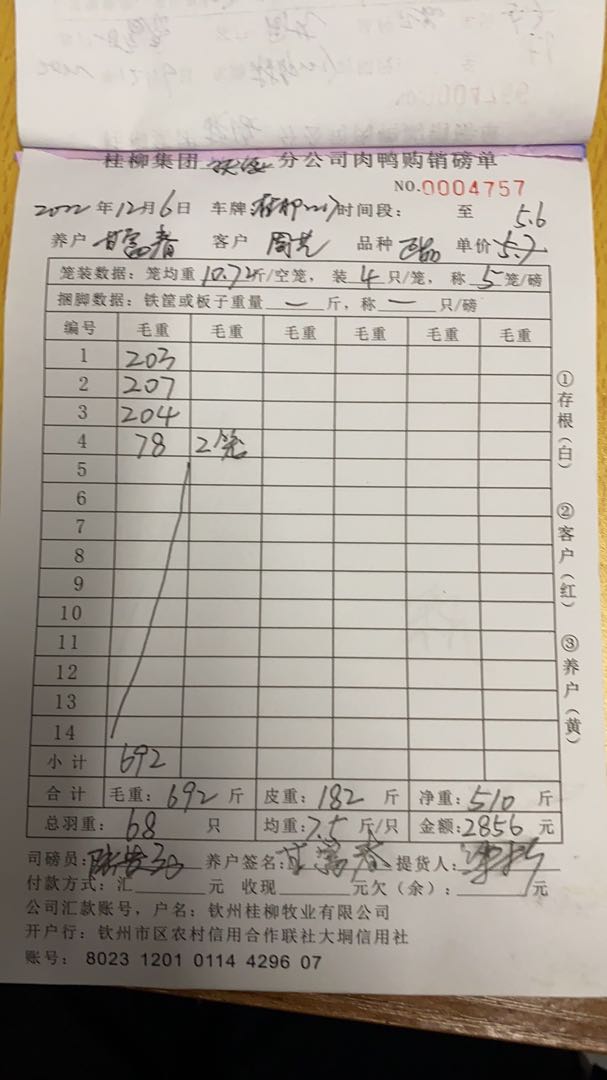 桂柳集团 分公司肉鸭购销磅单
NO.0004757
2022年12月6日 车牌: 时间段: 至
5.6
养户 甘富春 客户 品种 单价5.7
笼装数据: 笼均重10.72斤/空笼, 装4只/笼, 称5笼/磅
捆脚数据: 铁筐或板子重量一斤, 称一只/磅
编号 毛重 毛重 毛重 毛重 毛重 毛重
1 203
2 207
3 204
4 78 2笼
5
6
7
8
9
10
11
12
13
14
小计 692
合计 毛重: 692斤 皮重: 182斤 净重: 510斤
总羽重: 68只 均重: 7.5斤/只 金额: 2856元
司磅员: 养户签名: 甘富春 提货人:
付款方式: 汇 元 收现 元欠(余): 元
公司汇款账号, 户名: 钦州桂柳牧业有限公司
开户行: 钦州市区农村信用合作联社大垌信用社
账号: 8023 1201 0114 4296 07
①存根(白)
②客户(红)
③养户(黄)